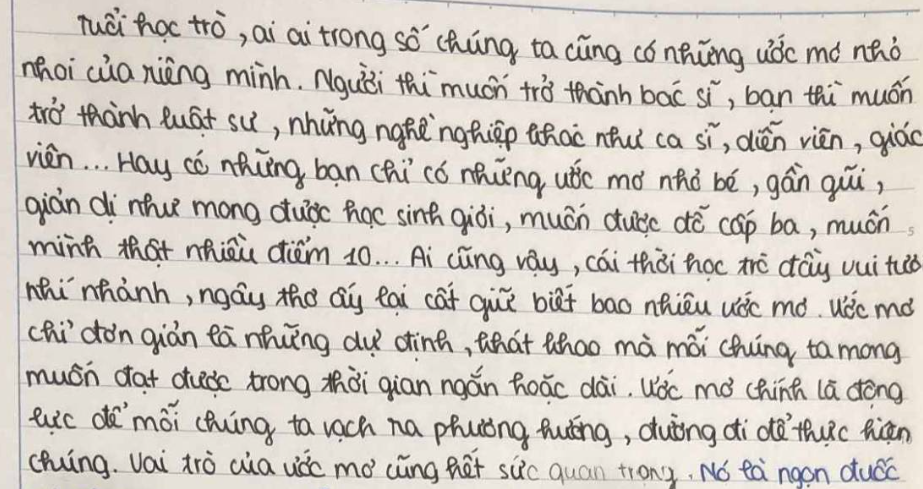 Tuổi học trò, ai ai trong số chúng ta cũng có những ước mơ nhỏ
nhoi của riêng mình. Người thì muốn trở thành bác sĩ, bạn thì muốn
trở thành luật sư, những nghề nghiệp khác như ca sĩ, diễn viên, giác
viên... Hay có những bạn chỉ có những ước mơ nhỏ bé, gần gũi,
giản dị như mong được học sinh giỏi, muốn được đỗ cấp ba, muốn
mình thật nhiều điểm 10... Ai cũng vậy, cái thời học trò đầy vui tươi
nhí nhảnh, ngây thơ ấy lại cất giữ biết bao nhiêu ước mơ. Ước mơ
chỉ đơn giản là những dự định, khát khao mà mỗi chúng ta mong
muốn đạt được trong thời gian ngắn hoặc dài. Ước mơ chính là động
lực để mỗi chúng ta vạch ra phương hướng, đường đi để thực hiện
chúng. Vai trò của ước mơ cũng hết sức quan trọng. Nó là ngọn đuốc